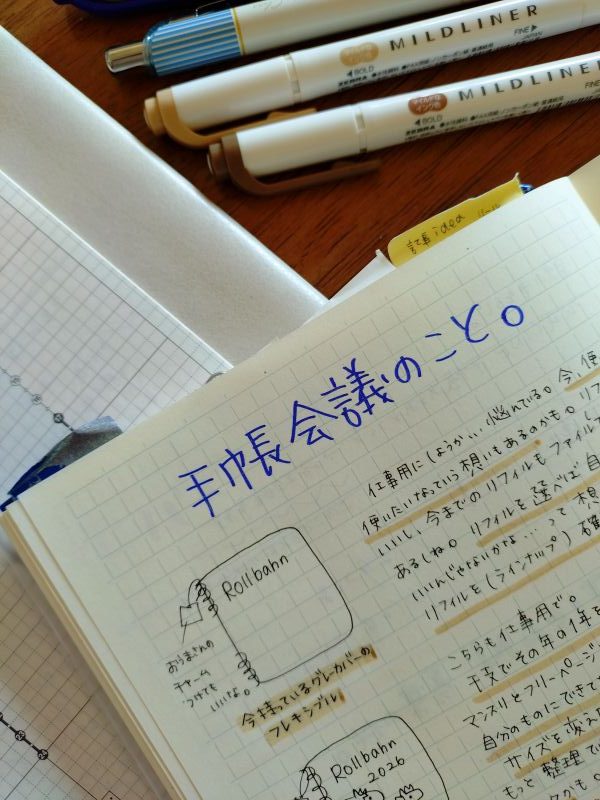 MILDLINER
FINE
JAPAN
BOLD
ZEBRA
MILDLINER
FINE
BOLD
ZEBRA
記事idea
手帳会議のこと。
仕事用にしようか…悩んでいる。今、使
使いたいなっていう想いもあるのかも。リフ
いいし、今までのリフィルもファイルで
あるしね。リフィルを選べば自
いいんじゃないかな…って想
リフィルを(ラインナップ)確
Rollbahn
おうまさんの
チャーム
つけても
いいな。
今持っているグレーカバーの
フレキシブル
こちらも仕事用で。
干支でその年の1年を
マンスリとフリーページ
自分のものにできて
サイズを変え
もっと整理で
Rollbahn
2026